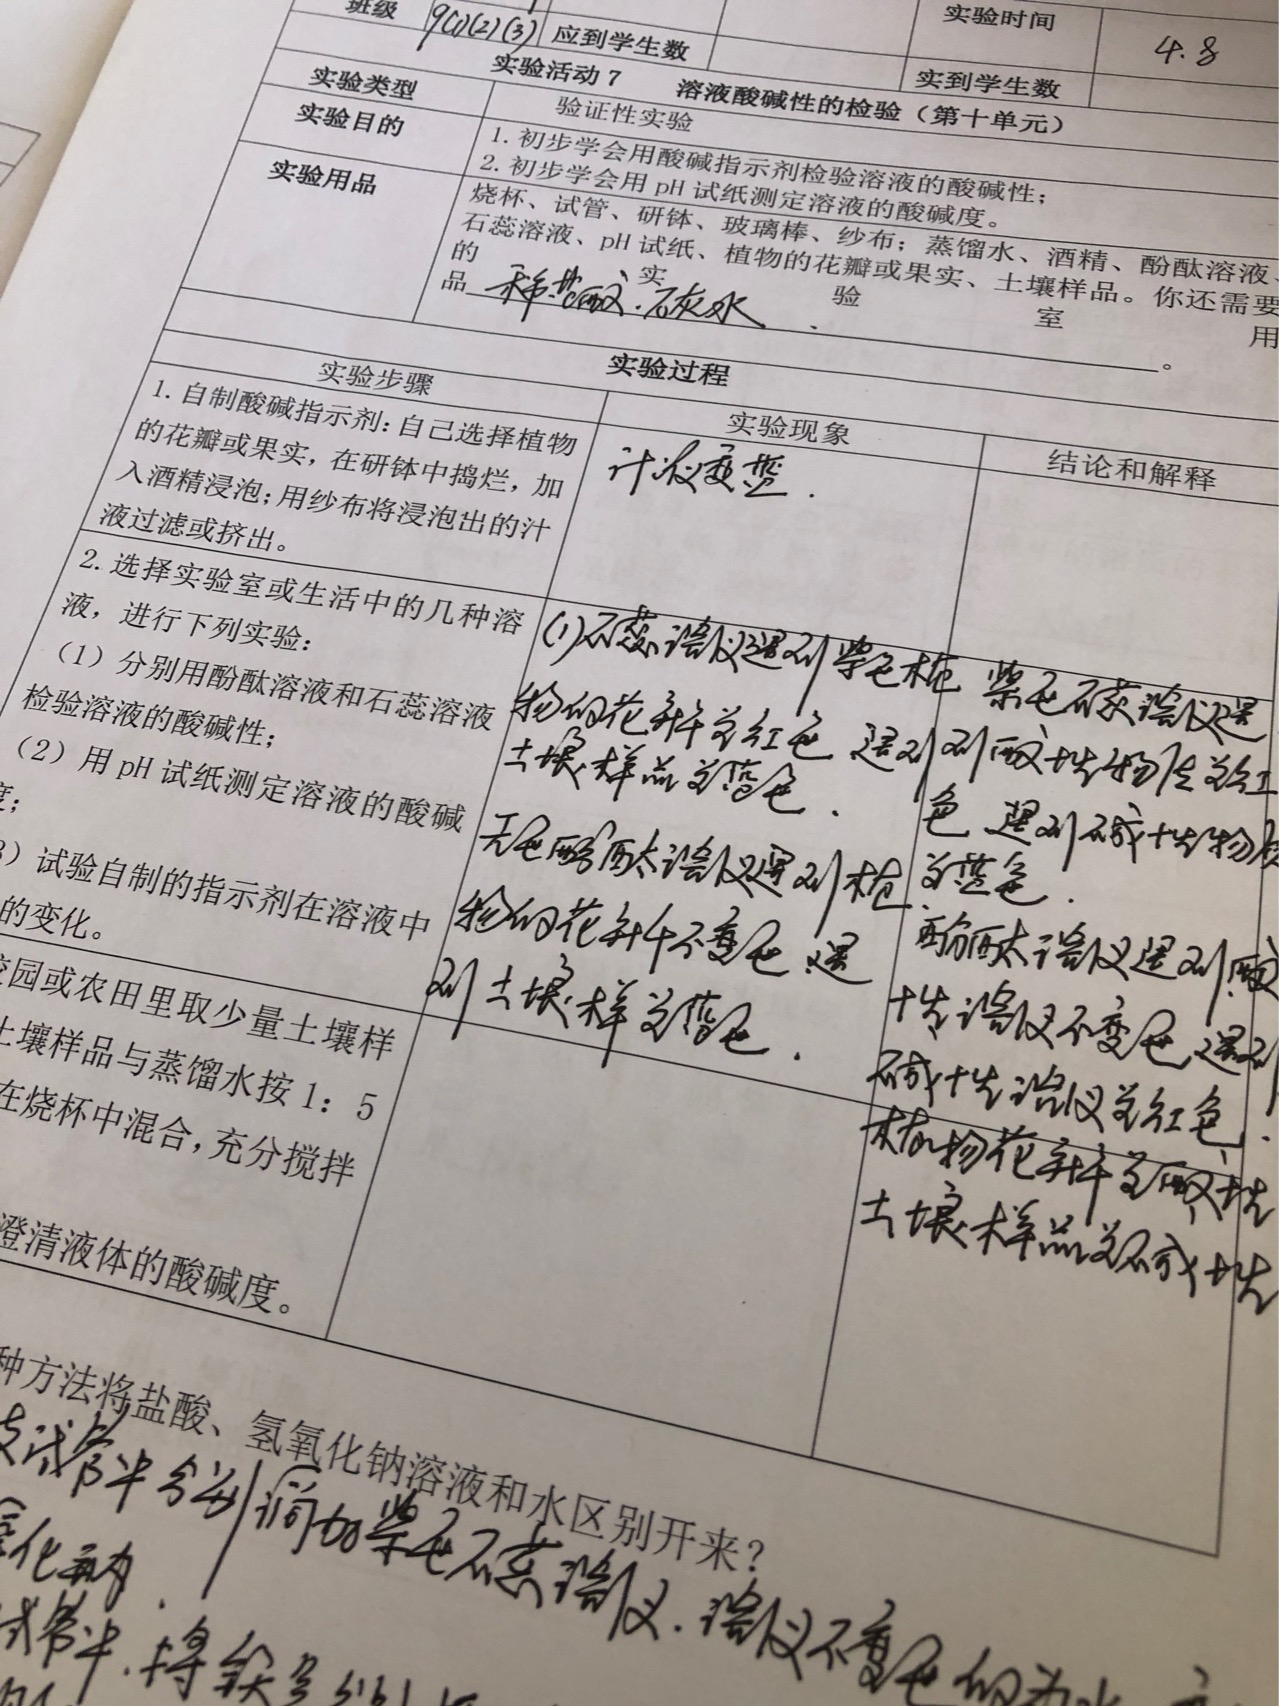 班级 9(1)(2)(3) 应到学生数 实验时间 4.8
实到学生数
实验活动7 溶液酸碱性的检验（第十单元）
实验类型 验证性实验
实验目的 1.初步学会用酸碱指示剂检验溶液的酸碱性；
2.初步学会用pH试纸测定溶液的酸碱度。
实验用品 烧杯、试管、研钵、玻璃棒、纱布；蒸馏水、酒精、酚酞溶液、
石蕊溶液、pH试纸、植物的花瓣或果实、土壤样品。你还需要
的 实 验 室 用
品 稀盐酸、石灰水 。
实验过程
实验步骤 实验现象 结论和解释
1.自制酸碱指示剂：自己选择植物
的花瓣或果实，在研钵中捣烂，加
入酒精浸泡；用纱布将浸泡出的汁
液过滤或挤出。
汁液变蓝.
2.选择实验室或生活中的几种溶
液，进行下列实验：
（1）分别用酚酞溶液和石蕊溶液
检验溶液的酸碱性；
（2）用pH试纸测定溶液的酸碱
度；
3）试验自制的指示剂在溶液中
的变化。
(1)石蕊溶液遇到紫色植
物的花瓣为红色 遇到
土壤样品为蓝色.
无色酚酞溶液遇到植
物的花瓣不变色 遇
到土壤样为蓝色.
紫色石蕊溶液遇
到酸性物质为红
色 遇到碱性物质
为蓝色.
酚酞溶液遇到酸
性溶液不变色 遇到
碱性溶液为红色.
植物花瓣为酸性
土壤样品为碱性
校园或农田里取少量土壤样
土壤样品与蒸馏水按1：5
在烧杯中混合，充分搅拌
澄清液体的酸碱度。
种方法将盐酸、氢氧化钠溶液和水区别开来？
支试管中分别滴加紫色石蕊溶液.溶液不变色的为水
氧化钠.
试管中.将